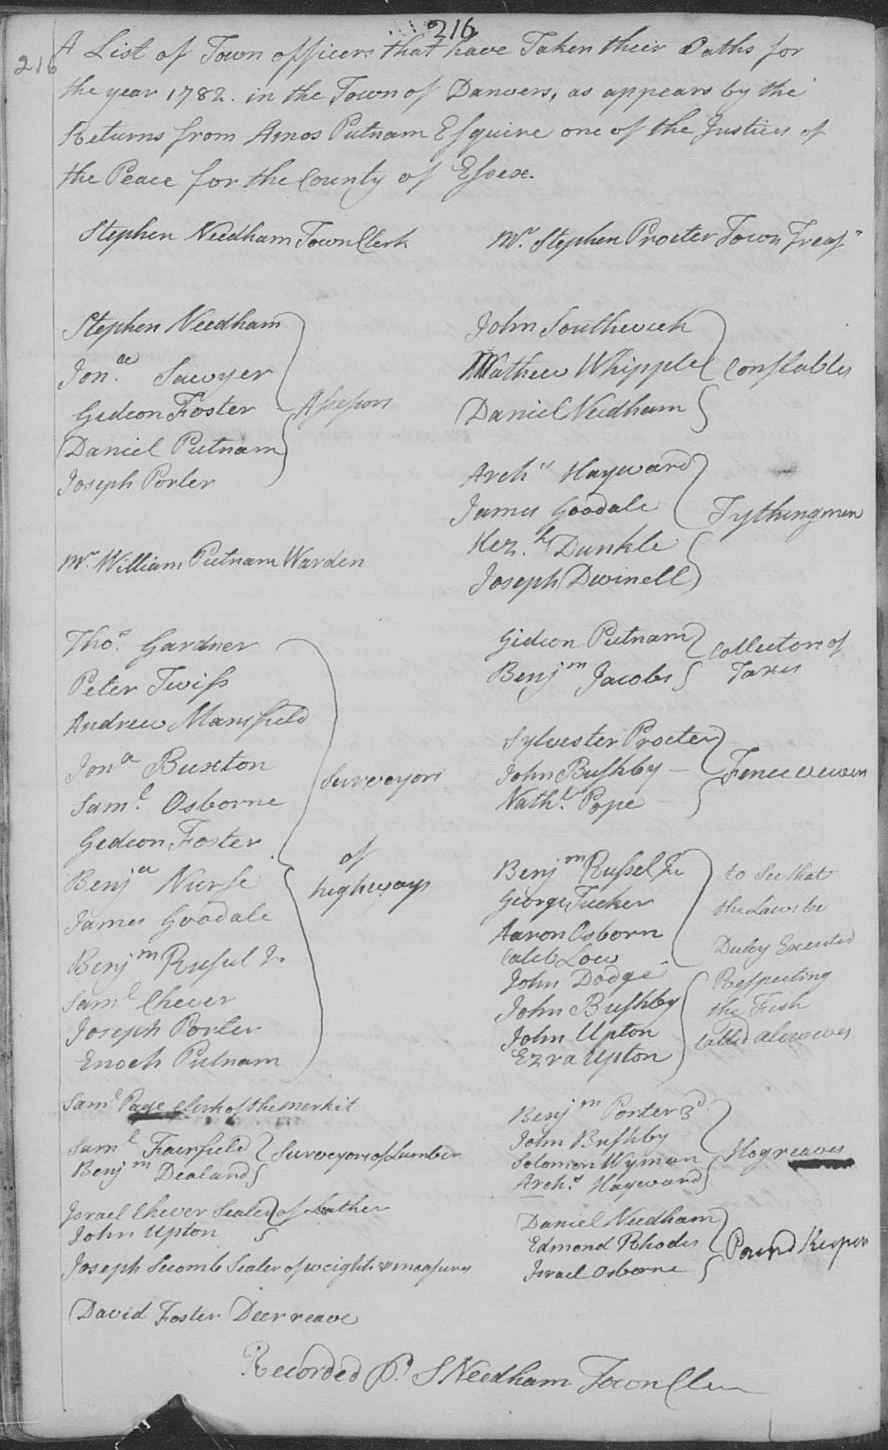 216
216
A List of Town officers that have Taken their Oaths for
the year 1782. in the Town of Danvers, as appears by the
Returns from Amos Putnam Esquire one of the Justices of
the Peace for the County of Essex.
Stephen Needham Town Clerk
Mr. Stephen Procter Town Treasr
Stephen Needham
Jona. Sawyer
Gideon Foster
Daniel Putnam
Joseph Porter
Assessors
Mr. William Putnam Warden
Thos. Gardner
Peter Twiss
Andrew Mansfield
Jona Buxton
Saml. Osborne
Gideon Foster
Benja Nurse
James Goodale
Benjm Russel Jr
Saml Chever
Joseph Porter
Enoch Putnam
Surveyors
of
highways
Saml Page Clerk of the merkit
Saml Fairfield
Benjm Dealand
Surveyors of Lumber
Israel Chever Sealer of Lather
John Upton
Joseph Secomb Sealer of weights & measurs
David Foster Deer reave
John Southwick
Mathew Whipple
Daniel Needham
Constables
Archs Hayward
James Goodale
Hez.h Dunkle
Joseph Dwinell
Tythingmen
Gideon Putnam
Benjm Jacobs
Collectors of
Taxes
Sylvester Procter
John Bushby
Nathl. Pope
Fence viewers
Benjm Russel Jr
George Tucker
Aaron Osborn
Caleb Low
John Dodge
John Bushby
John Upton
Ezra Upton
to See that
the Laws be
Duley Executed
Respecting
the Fish
Called alewives
Benjm Porter 3d
John Bushby
Solomon Wyman
Archs Hayward
Hogreaves
Daniel Needham
Edmond Rhodes
Israel Osborne
Pound Keeper
Recorded Pr S Needham Town Cler